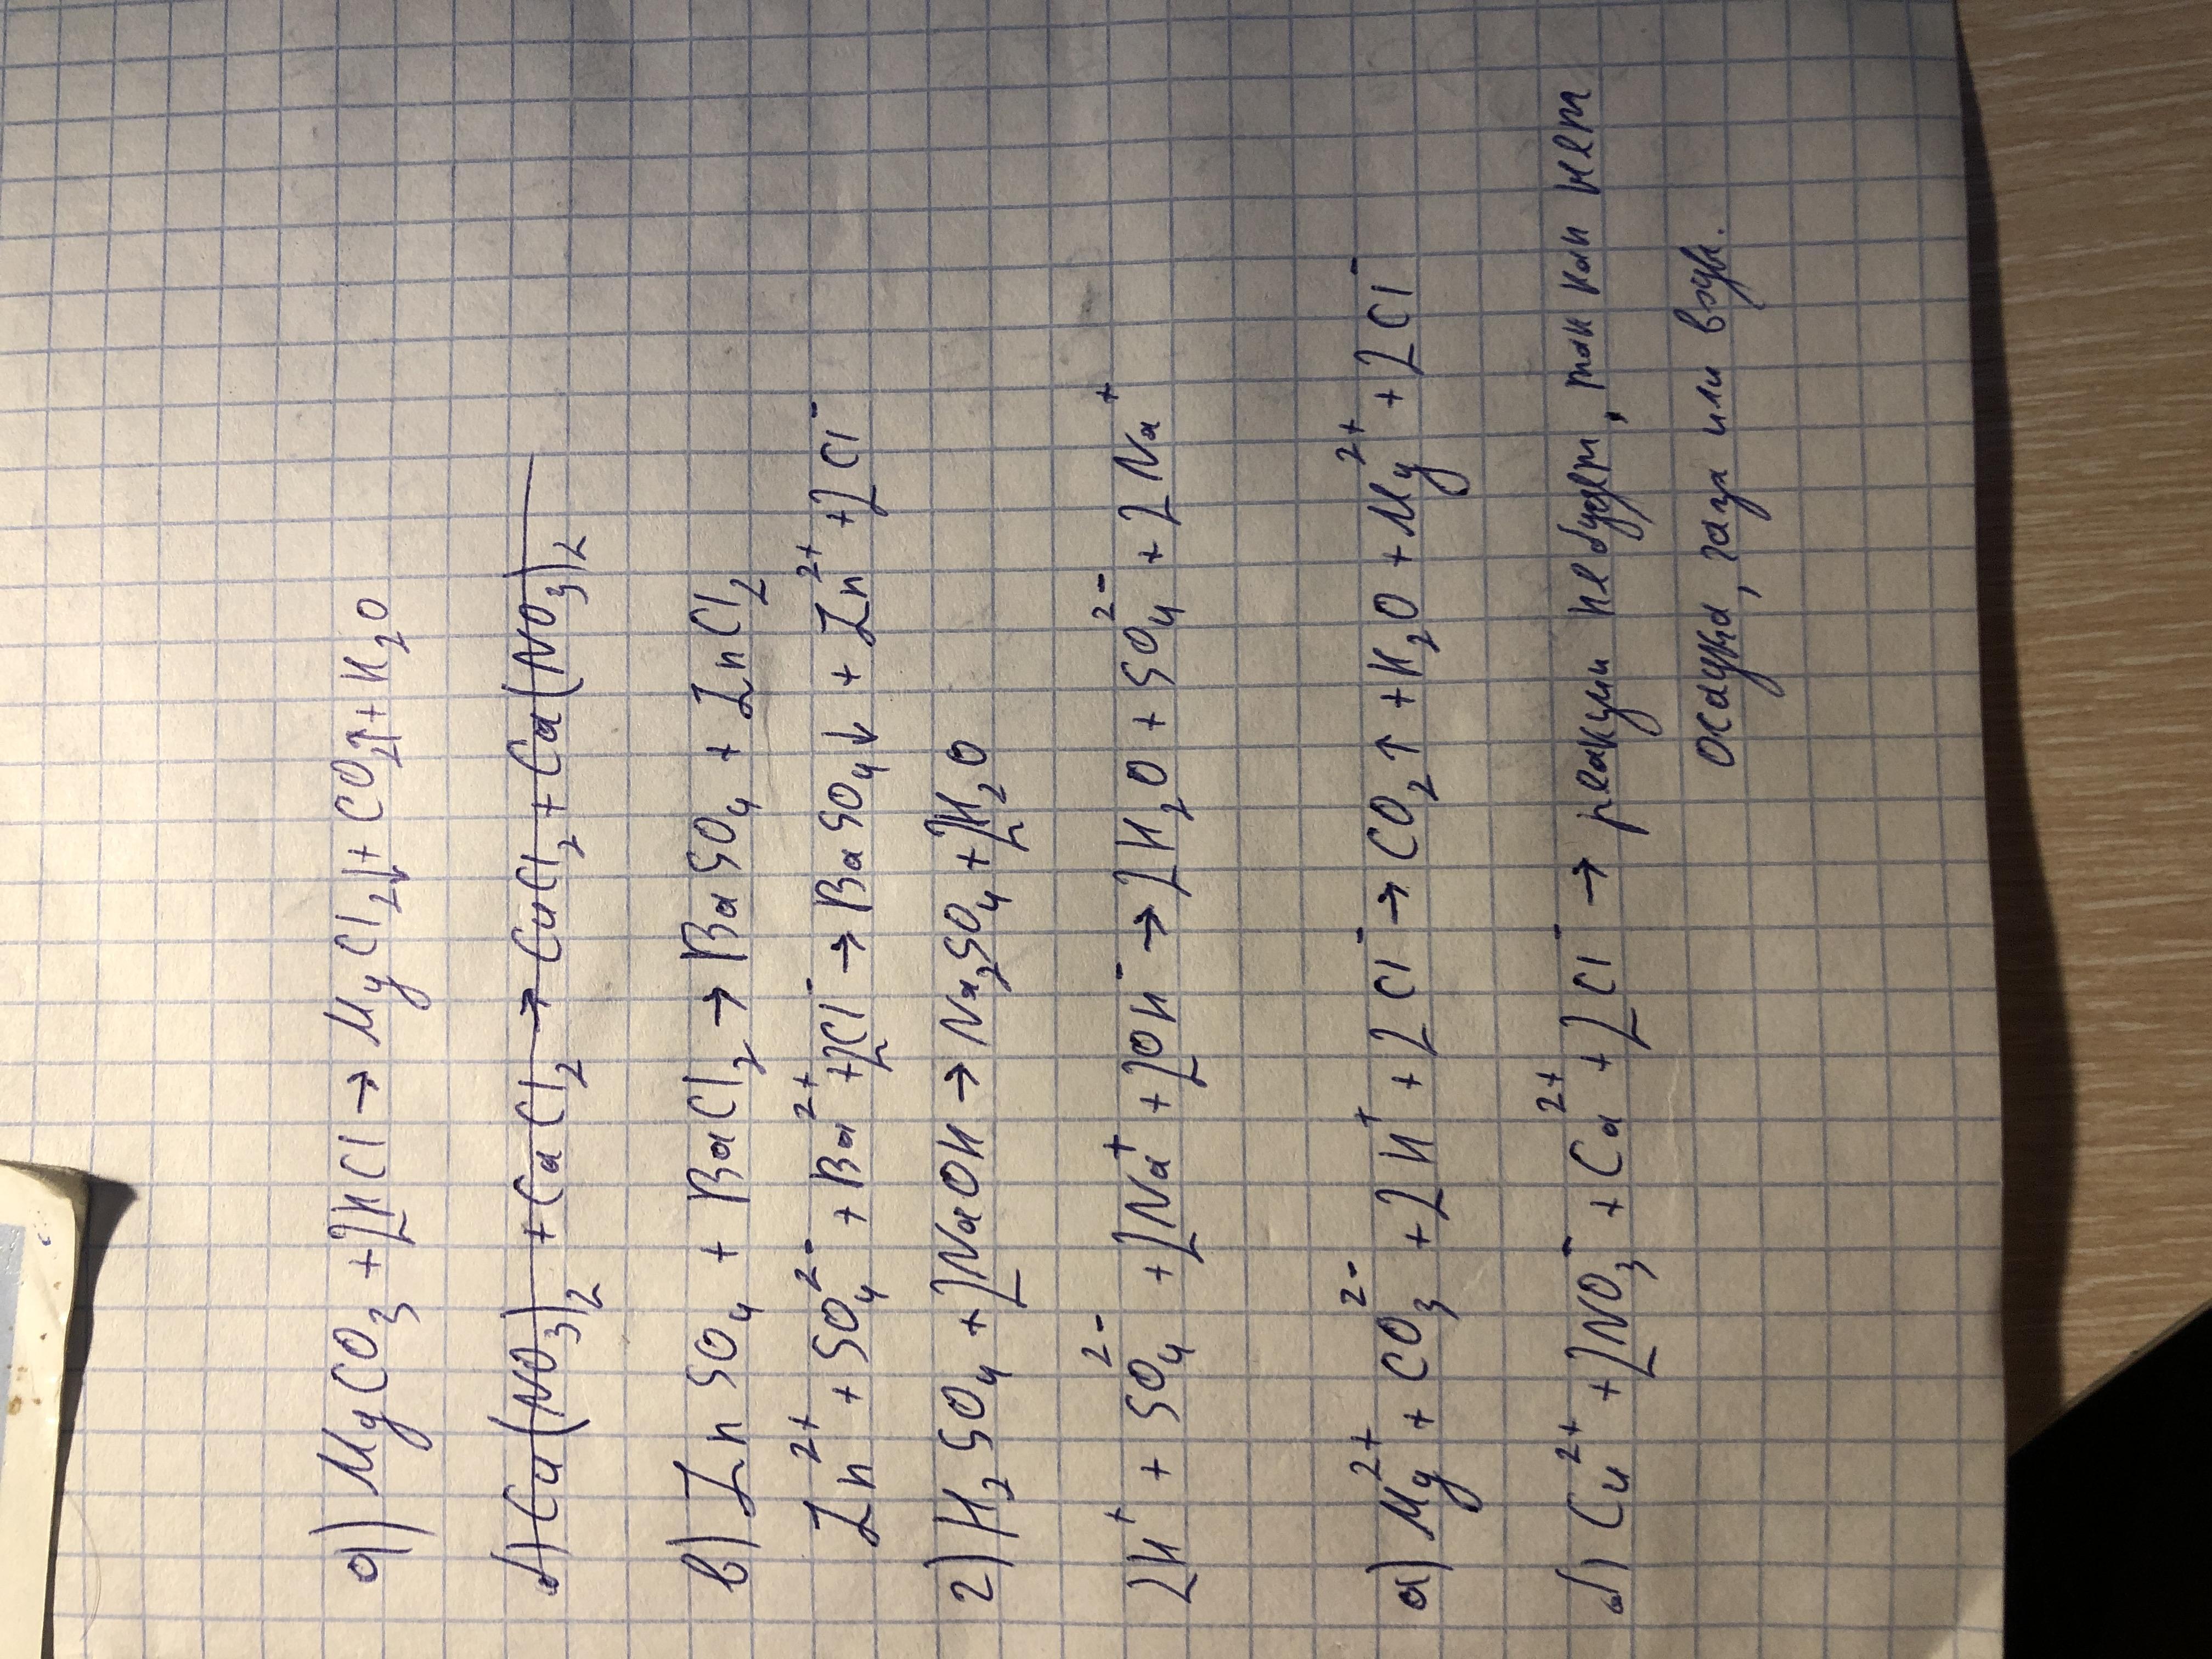 а) MgCO₃ + 2HCl → MgCl₂↓ + CO₂↑ + H₂O
б) Cu(NO₃)₂ + CaCl₂ → CuCl₂ + Ca(NO₃)₂
в) ZnSO₄ + BaCl₂ → BaSO₄ + ZnCl₂
Zn²⁺ + SO₄²⁻ + Ba²⁺ + 2Cl⁻ → BaSO₄↓ + Zn²⁺ + 2Cl⁻
г) H₂SO₄ + 2NaOH → Na₂SO₄ + 2H₂O
2H⁺ + SO₄²⁻ + 2Na⁺ + 2OH⁻ → 2H₂O + SO₄²⁻ + 2Na⁺
а) Mg²⁺ + CO₃²⁻ + 2H⁺ + 2Cl⁻ → CO₂↑ + H₂O + Mg²⁺ + 2Cl⁻
б) Cu²⁺ + 2NO₃⁻ + Ca²⁺ + 2Cl⁻ → реакции не будет, так как нет
осадка, газа или воды.